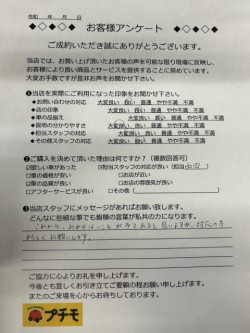 令和　年　月　日
◆◇◆◇　お客様アンケート　◆◇◆◇
ご成約いただき誠にありがとうございます。
当店では、お買い上げ頂いたお客様の声を可能な限り現場に反映し、
お客様により良い商品とサービスを提供することに努めています。
大変お手数ですが是非お声をお聞かせ下さい。
❶当店を実際にご利用になった印象をお聞かせ下さい。
◆お問い合わせの対応　大変良い 良い 普通 やや不満 不満
◆店の印象　大変良い 良い 普通 やや不満 不満
◆車の品揃え　大変良い 良い 普通 やや不満 不満
◆説明の分かりやすさ　大変良い 良い 普通 やや不満 不満
◆担当スタッフの対応　大変良い 良い 普通 やや不満 不満
◆その他スタッフの対応　大変良い 良い 普通 やや不満 不満
❷ご購入を決めて頂いた理由は何ですか？（複数回答可）
☑欲しい車があった　☑担当スタッフの対応が良い（担当
□車の価格が安い　□品質が良い
□車の状態が良い　□お店の雰囲気が良い
□アフターサービスが良い　□その他（　　）
❸当店スタッフにメッセージがあればお願い致します。
どんなに些細な事でも皆様の言葉が私共の力になります。
これから、わからないことが出てくると思いますが、対応の方
よろしくお願いします。
ご協力に心よりお礼を申し上げます。
今後とも宜しくお引き立てご愛顧の程お願い申し上げます。
またのご来場を心からお待ちしております。
プチモ